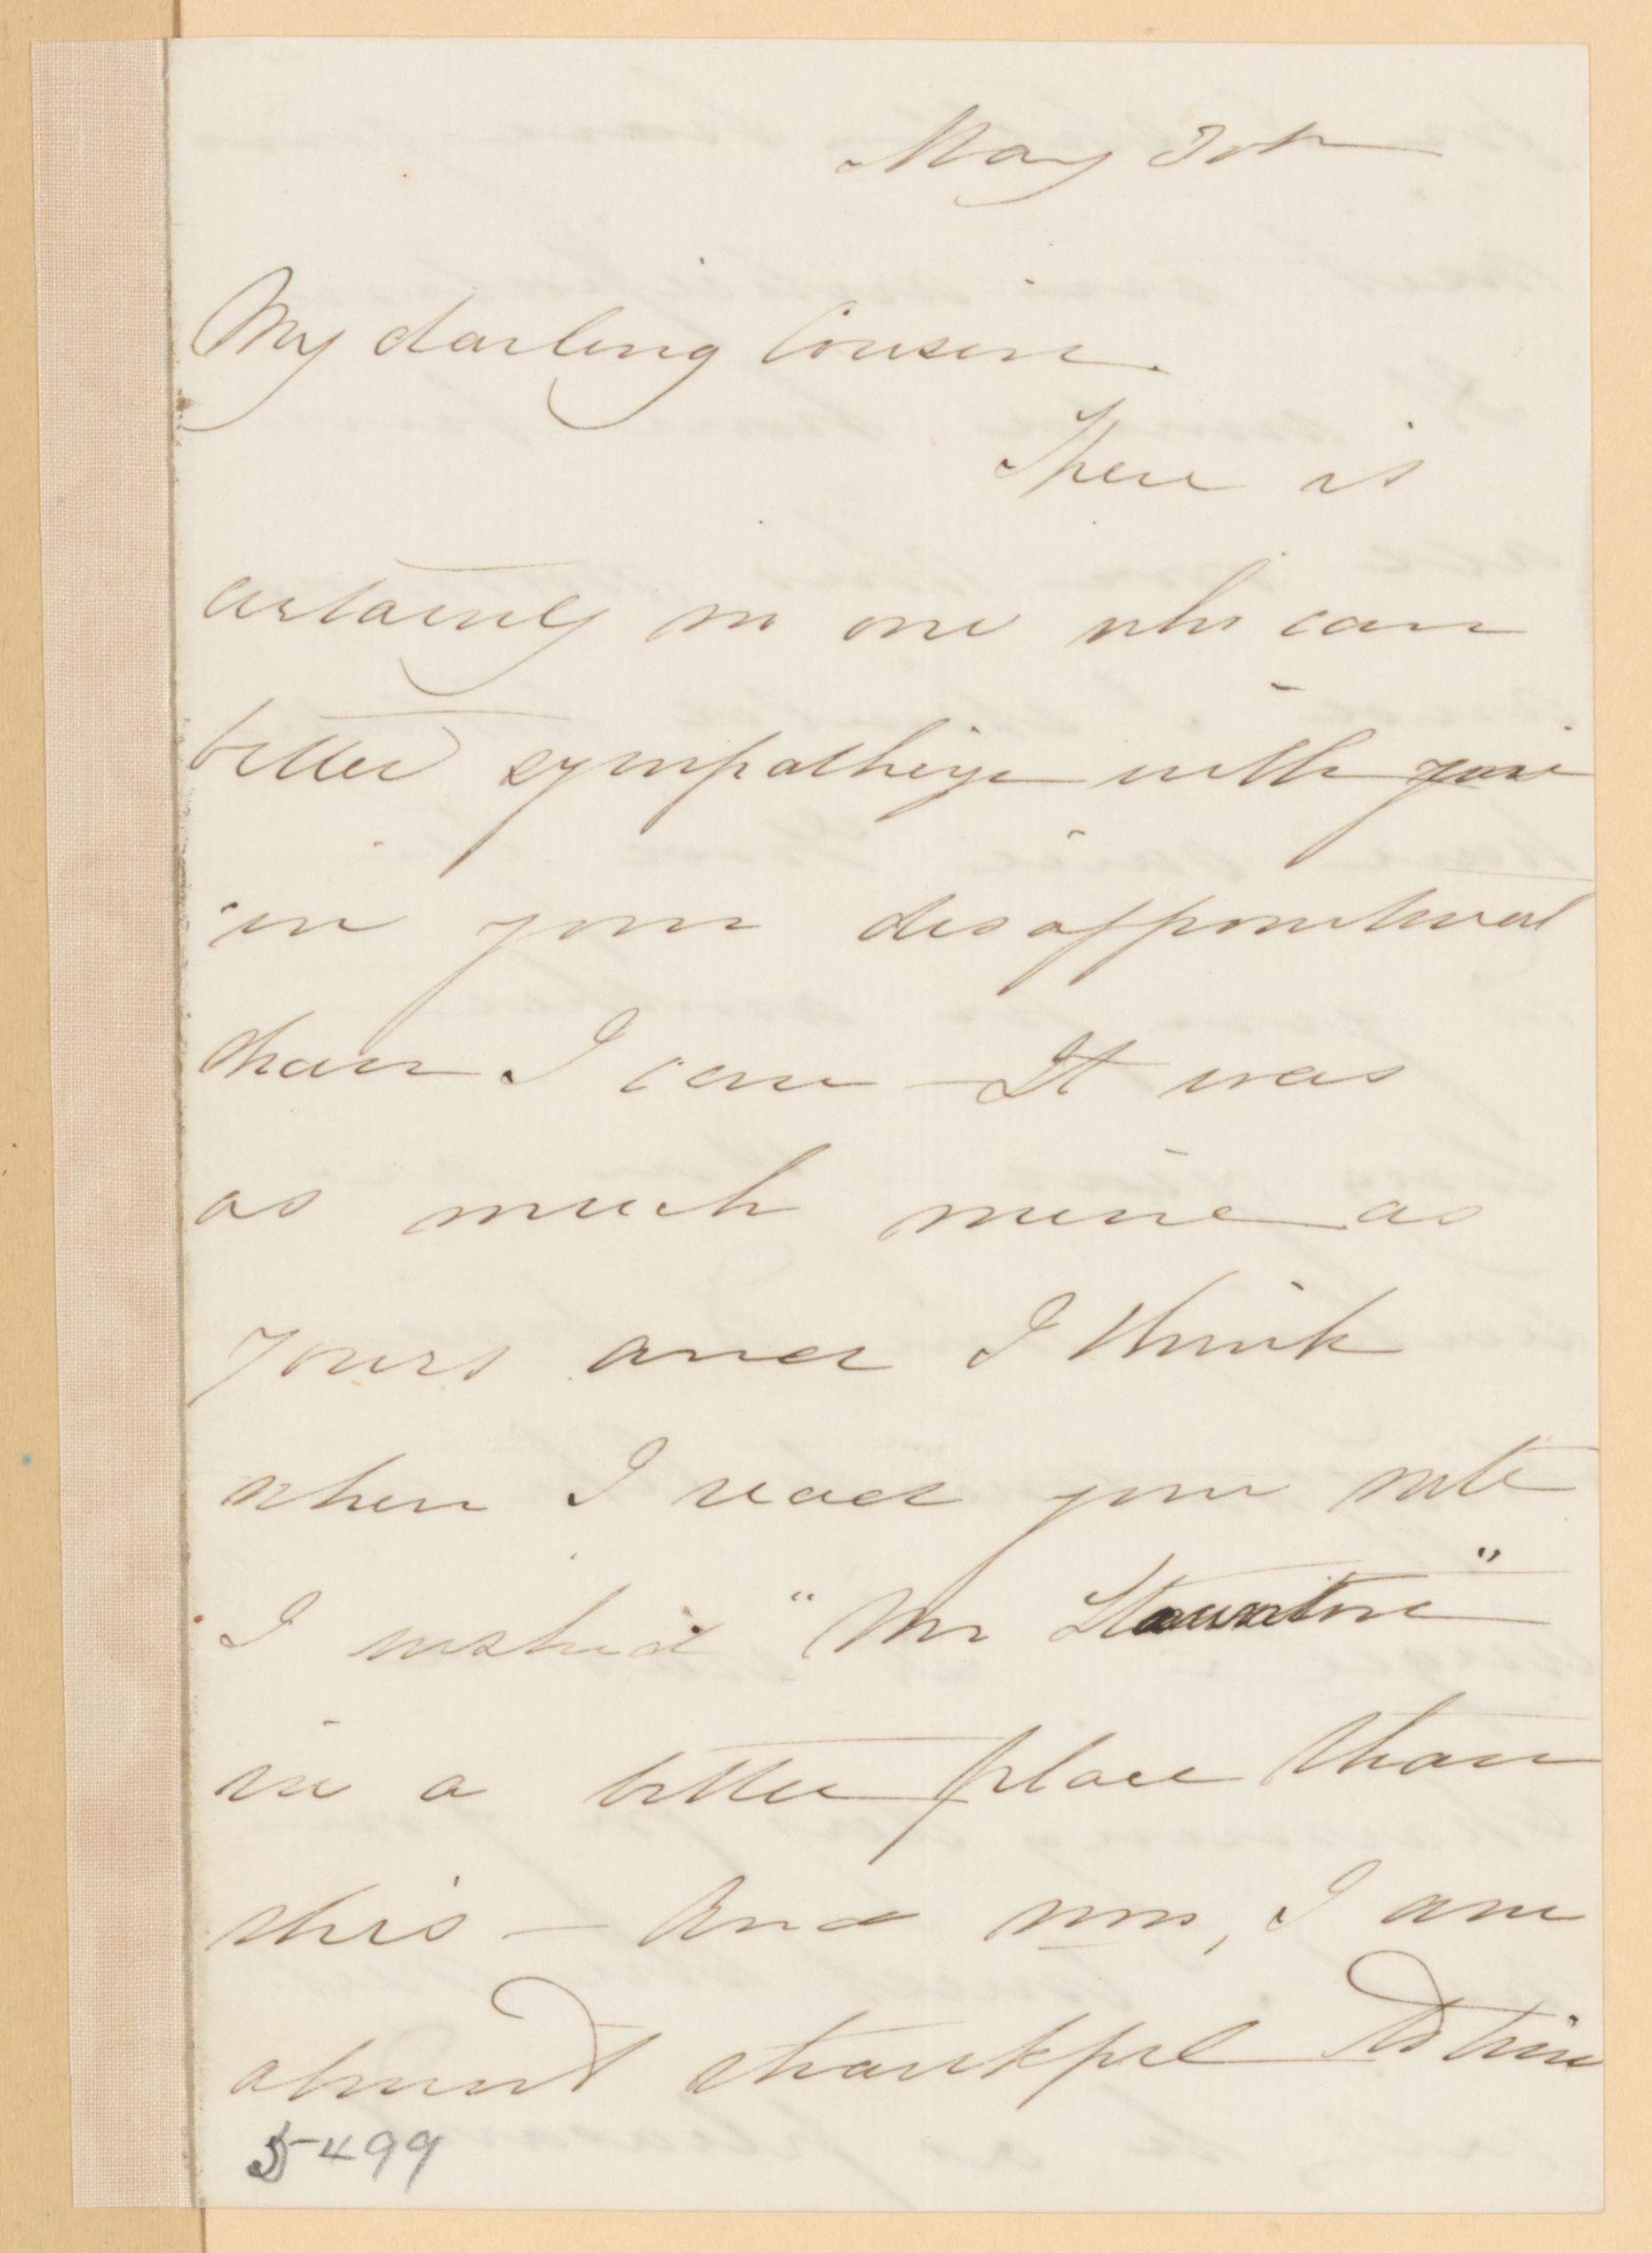 May 30th
My darling Cousin.
There is
certainly no one who can
better sympathize with you
in your disappointment
than I can — It was
as much mine as
yours and I think
when I read your note
I wished "Mr Staunton"
in a better place than
this — And now, I am
almost thankful to him
5499